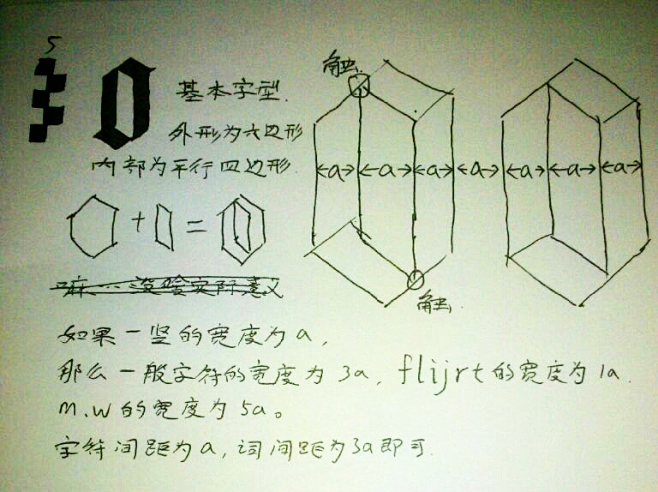 5
0
基本字型.
外形为六边形
内部为平行四边形.
+ =
触
触.
←a→ ←a→ ←a→ ←a→ ←a→ ←a→ ←a→
嘛…没啥实际意义
如果一竖的宽度为a,
那么一般字符的宽度为3a, flijrt的宽度为1a.
m.w的宽度为5a。
字符间距为a,词间距为3a即可.